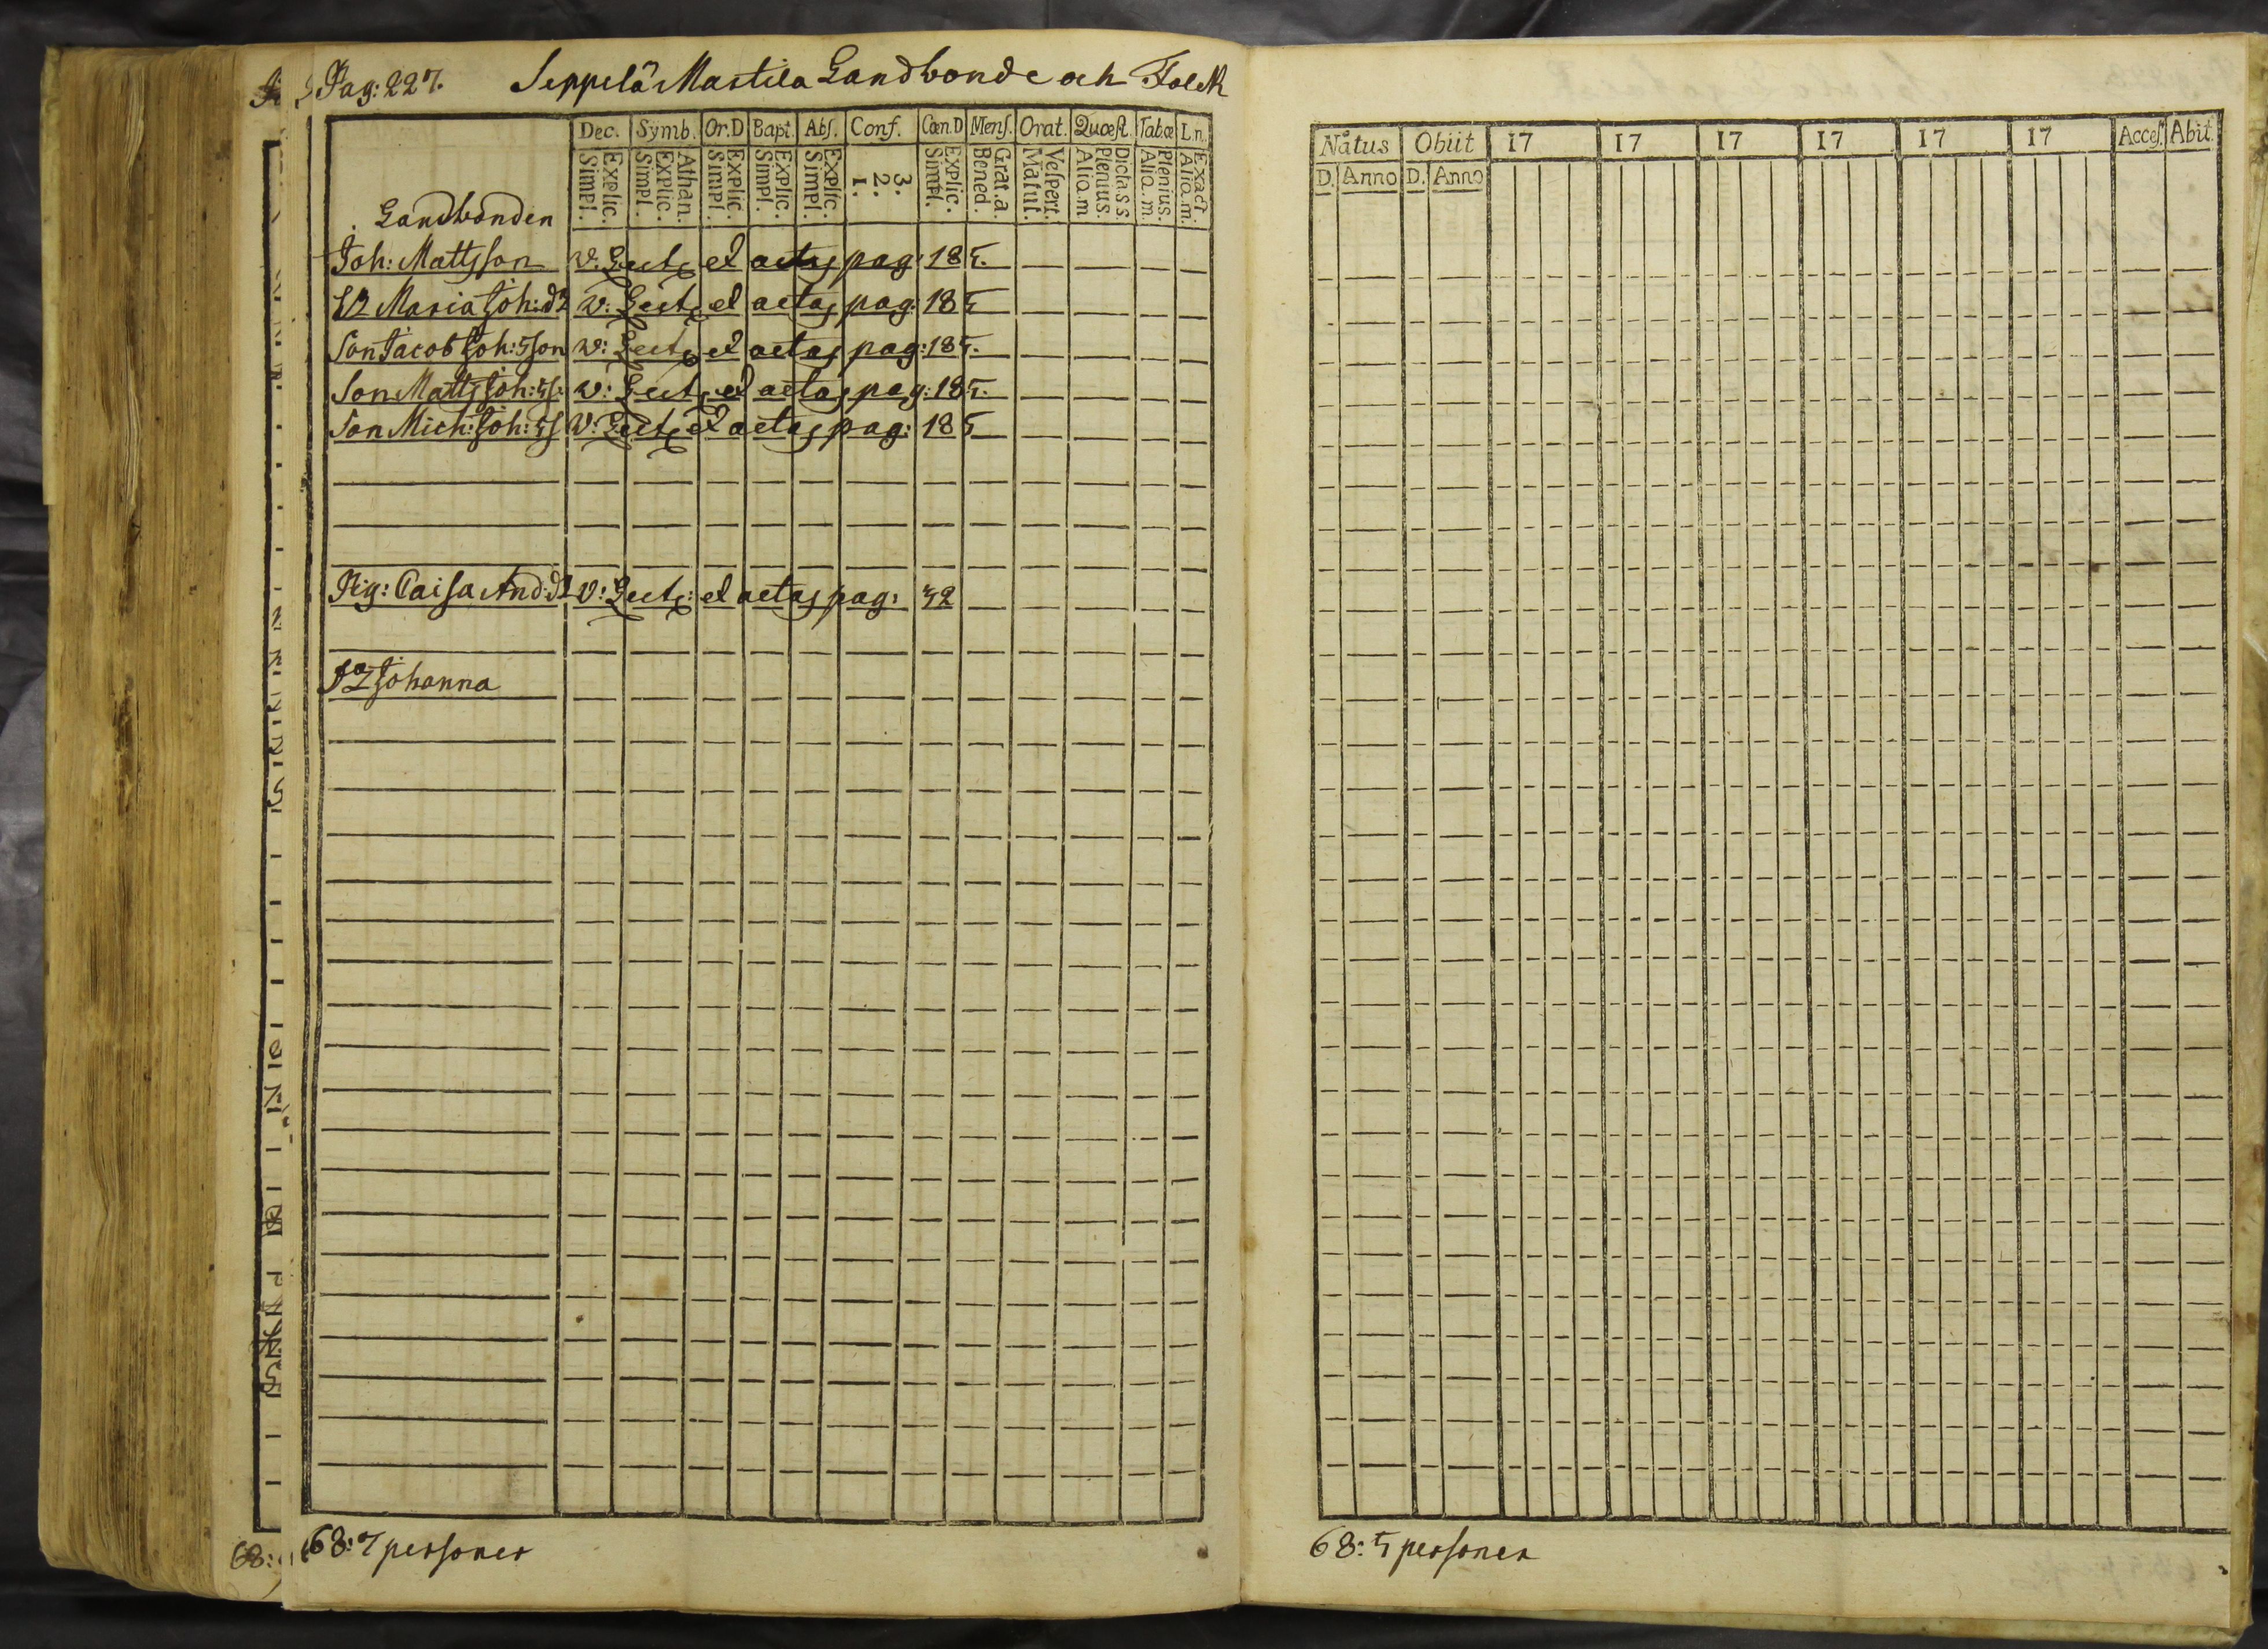 Pag: 227. Seppelä Mastila Landbonde och Folck
Dec. Symb. Or.D Bapt. Abſ. Conf. Cœn.D Menſ. Orat. Quœſt. Tabœ Ln.
Explic. Simpl. Athan. Explic. Simpl. Explic. Simpl. Explic. Simpl. Explic. Simpl. 3. 2. 1. Explic. Simpl. Grat.a. Bened. Veſpert. Matut. Dicta s s. Plenius. Aliq.m Plenius. Aliq.m. Exact. Aliq.m.
Landbonden
Joh: Mattsson v: Lect: et aetas pag: 185.
H? Maria Joh:dr v: Lect: et aetas pag: 185
Son Jacob Joh:sson v: Lect: et aetas pag: 185.
Son Matts Joh:ss: v: Lect: et aetas pag: 185.
Son Mich: Joh:ss v: Lect: et aetas pag: 185
Pig: Caisa And:dr v: Lect: et aetas pag: 52
Johanna
68: 7 personer
Natus Obiit 17 17 17 17 17 17 Acceſ. Abit.
D. Anno D. Anno
68: 5 personer